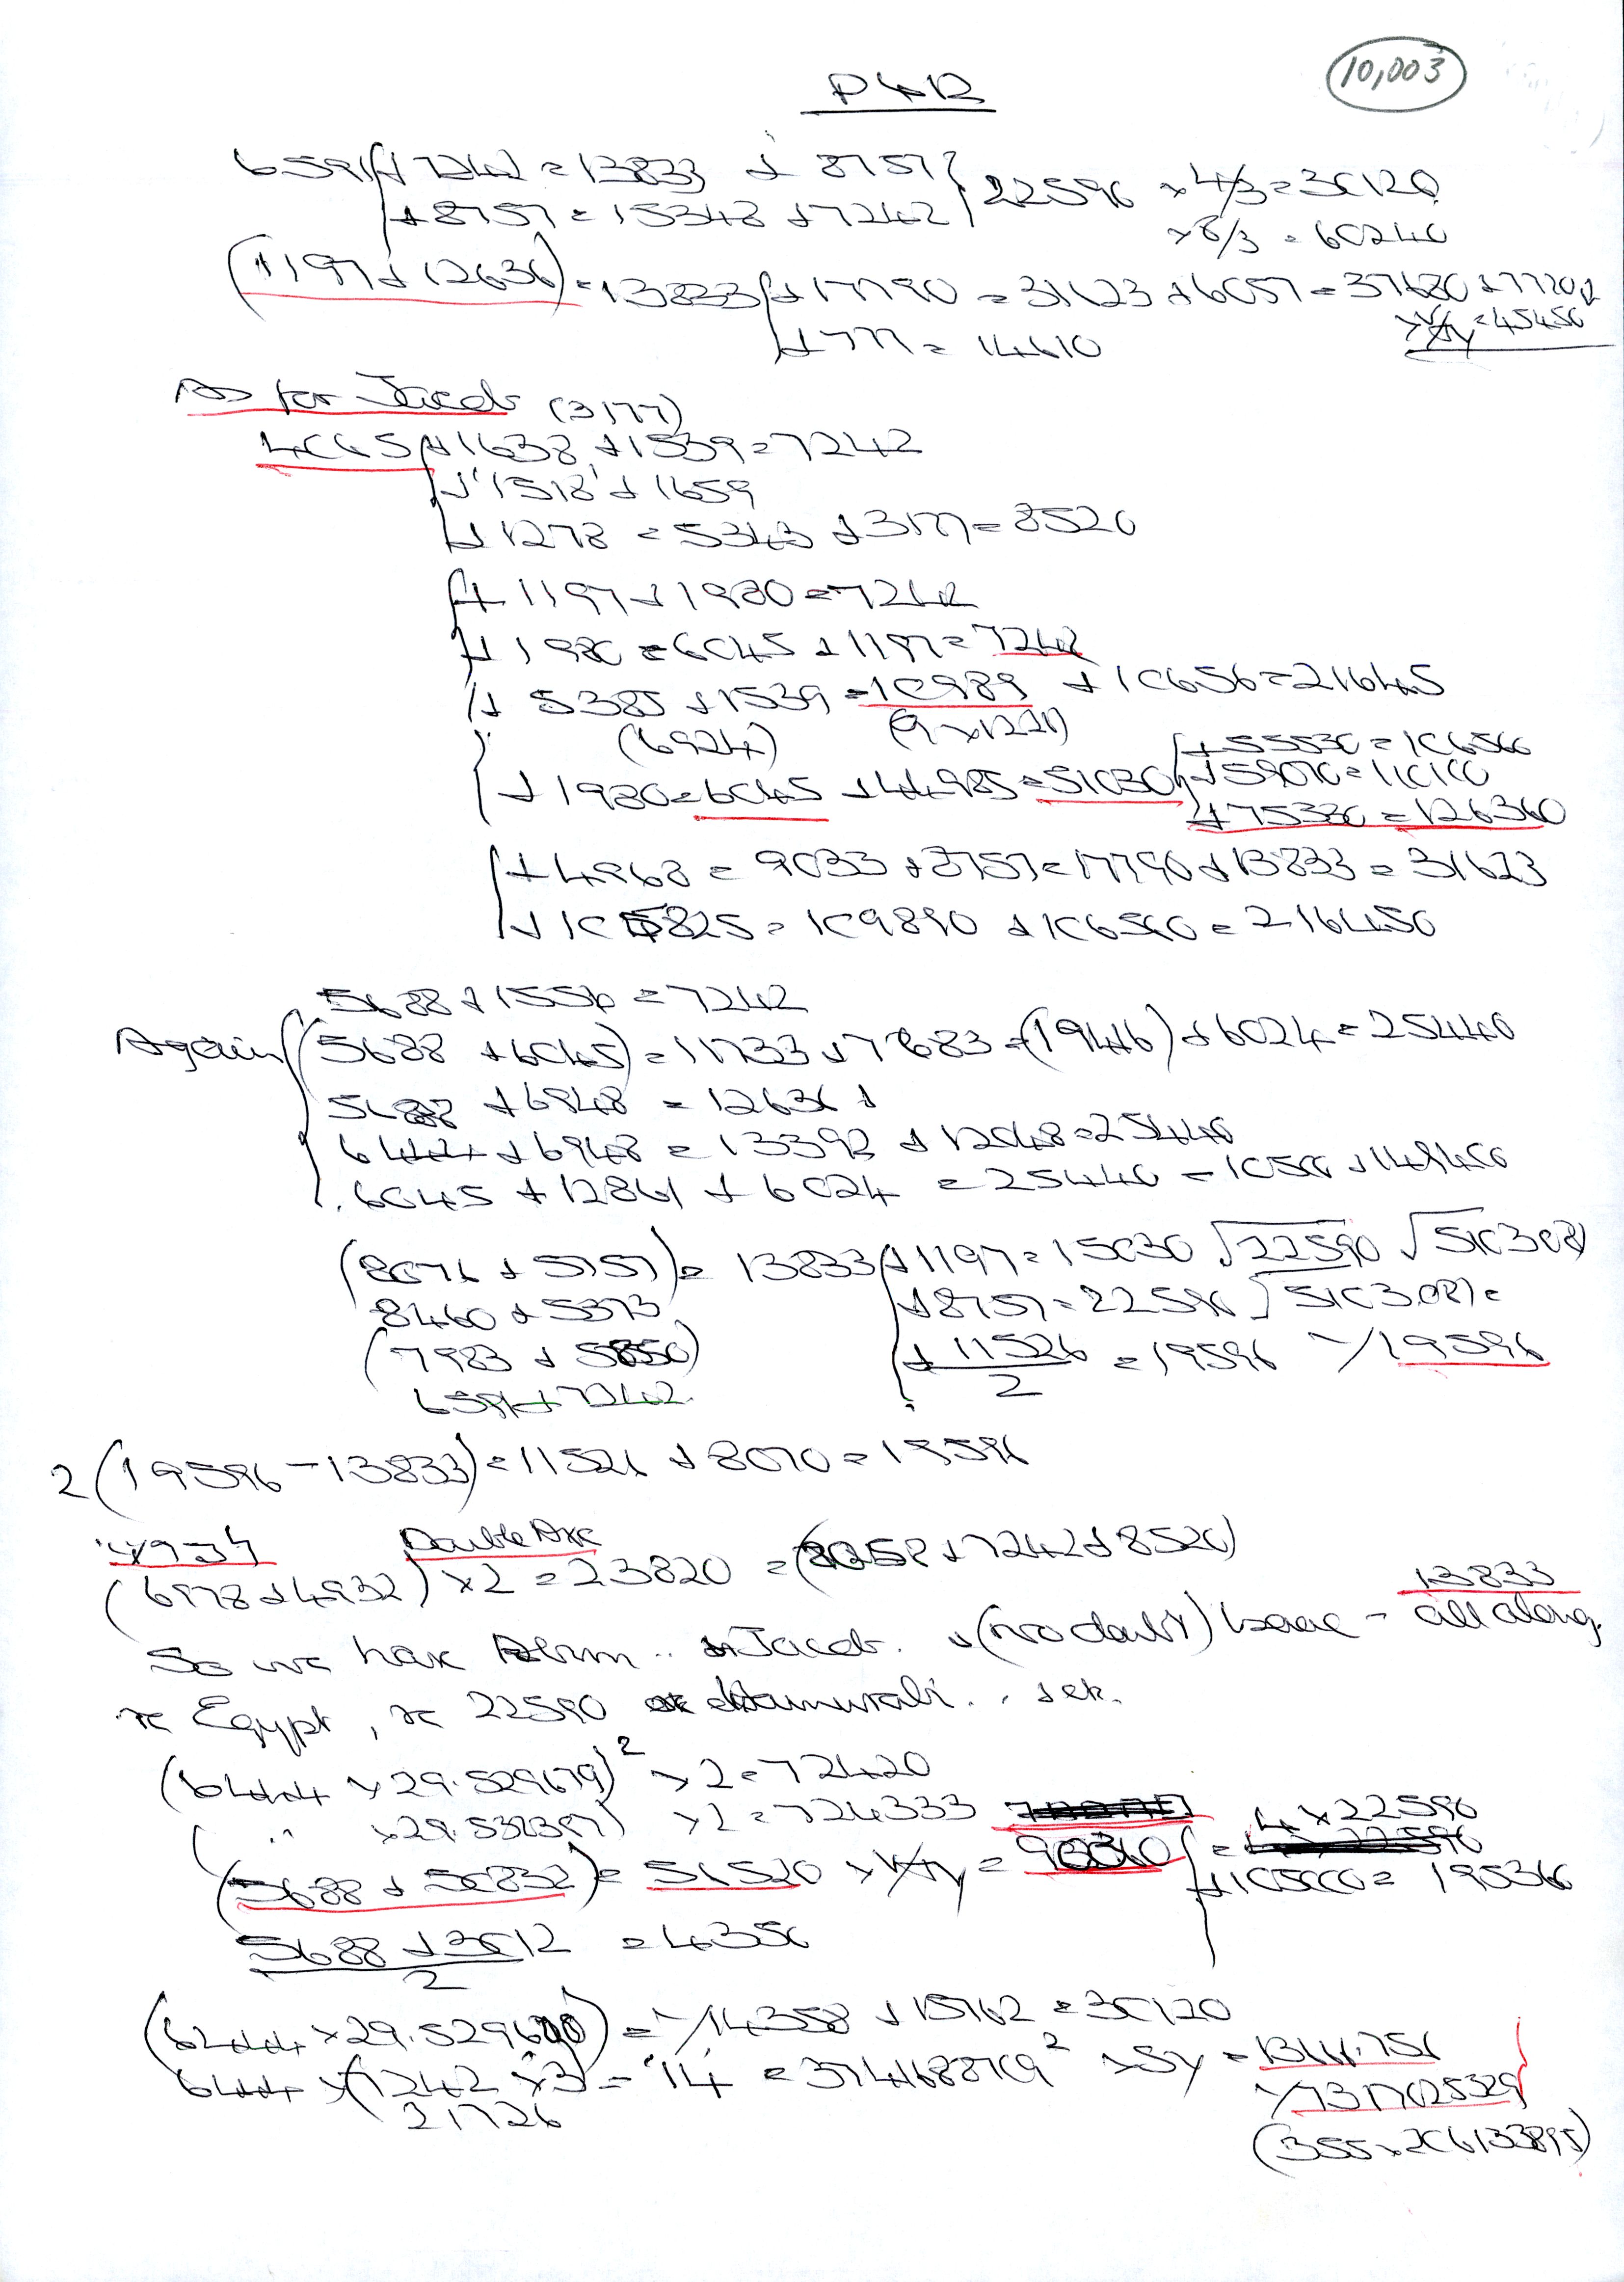 10,003
6591 + 7242 = 13833 + 8757 } 22590 × 4/3 = 30120
+ 8757 = 15348 + 7242
× 8/3 = 60240
(1197 + 12636) = 13833 { + 17790 = 31623 + 6057 = 37680 + 7770
+ 777 = 14610
= 45450
As for Jacob (3177)
4065 + 1638 + 1539 = 7242
+ 1518 + 1659
+ 1278 = 5343 + 3177 = 8520
+ 1197 + 1980 = 7242
+ 1980 = 6045 + 1197 = 7242
+ 5385 + 1539 = 10989 + 10656 = 21645
(6924) (9 × 1221)
+ 55530 = 106560
+ 1980 = 6045 + 44985 = 51030 + 59070 = 110100
+ 75330 = 126360
+ 4968 = 9033 + 8757 = 17790 + 13833 = 31623
+ 105825 = 109890 + 106560 = 216450
5688 + 1554 = 7242
Again (5688 + 6045) = 11733 + 7683 = (19416) + 6024 = 25440
5688 + 6948 = 12636 +
6444 + 6948 = 13392 + 12048 = 25440
6045 + 12861 + 6024 = 25440 = 10500 + 14940
(8076 + 5757) = 13833 { + 1197 = 15030 √22590 √510308
8460 + 5373 + 8757 = 22590
(7983 + 5850) + 11526/2 = 19596 19596
6591 + 7242
2(19596 - 13833) = 11526 + 8070 = 19596
Double Axe
(6978 + 4932) × 2 = 23820 = (8058 + 7242 + 8520)
13833
So we have Abrm .. + Jacob. + (no doubt) Isaac - all along.
re Egypt, re 22590 Hamurabi .. + etc.
(6444 × 29.529679)² × 2 = 72420
" × 29.530397) × 2 = 724333
4 × 22590
(5688 + 50832) = 56520 = 90360 + 105000 = 195360
5688 + 3012 = 4350
2
(6444 × 29.529600) = 14358 + 15762 = 30120
6444 × (7242 × 3) = 14 = 374168769² × 54 = 1344.756
21726
7317025329
(355 × 206133895)